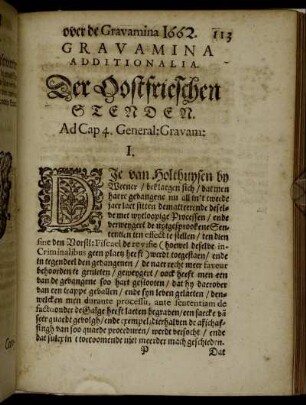 over de Gravamina 1662. 113
GRAVAMINA
ADDITIONALIA.
Der Oostfrieschen
STENDEN.
Ad Cap 4. General: Gravam:
I.
DIe van Holthuysen by
Weener / beklaegen sich / dat men
haere gevangene nu all in't twede
jaer laet sitten de matterende desel-
de met wytloopige Processen / ende
verweygert de uytgesproockene Sen-
tentien ten effect te stellen / ten dien
fine den Vorstl: Fiscael de revisie (hoewel deselve in
Criminalibus geen plaets heeft) werdt toegestaen / ende
in tegendeel den gevangenen / de naer recht meer faveur
behoorden te genieten / geweygert / oock heeft men een
van de gevangene soo hart geslooten / dat hy daerover
van een trappe gevallen / ende syn leven gelaeten / den-
welcken men durante processu, ante sententiam de
facto onder de Galge heeft laeten begraven / een saecke van
seer quaede gevolgh / ende exempel / dierhalven de afschaf-
fingh van soo quaede proceduren / werdt versocht / ende
dat sulcx in t' toecomende niet meerder mach geschieden.
P Dat